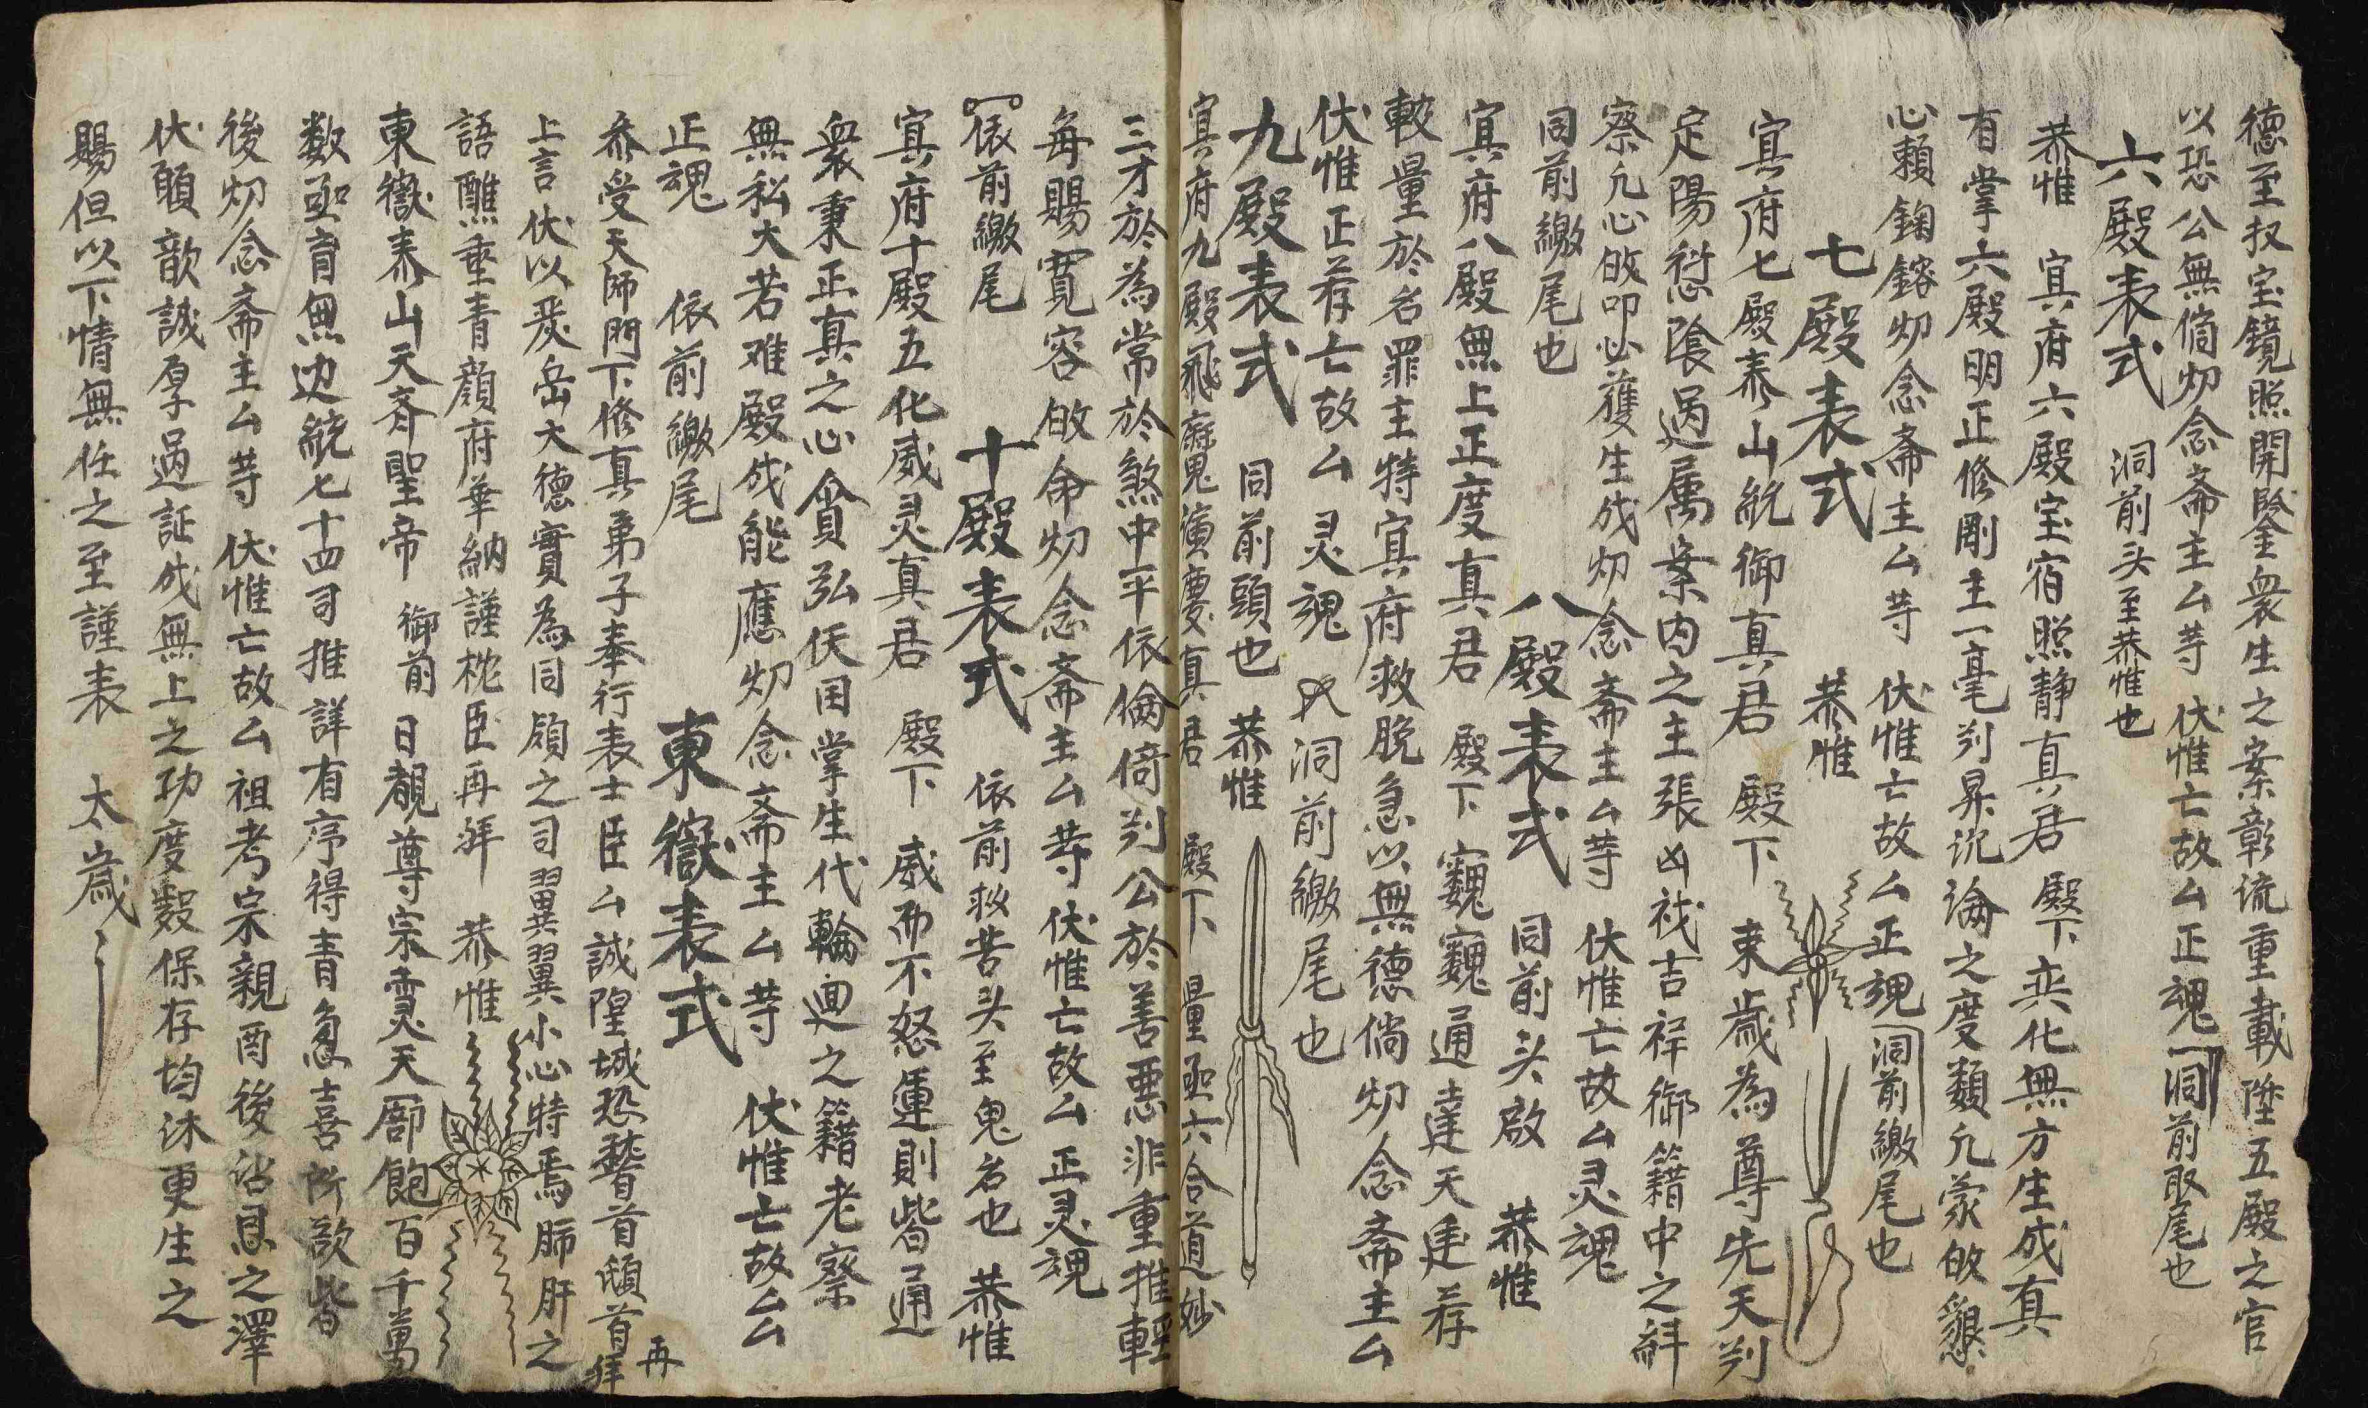 德至权宝鏡照開鋻衆生之案彰流重載陞五殿之官
以恐公無倘切念斋主厶䒭 伏惟亡故厶正魂 洞前取尾也
六殿表式 洞前头至恭惟也
恭惟 冥府六殿宝宿照静真君 殿下 奕化無方生成有真
有掌六殿明正修剛主一毫判昇沉論之度類凢蒙攸懇
心賴鋾鎔切念斋主厶䒭 伏惟亡故厶正魂 洞前繳尾也
七殿表式 恭惟
冥府七殿泰山統御真君 殿下 東嶽為尊先天判
定陽愆陰過属案内之主張凶祲吉祥御籍中之觧
察凢心攸叩必獲生成切念斋主厶䒭 伏惟亡故厶灵魂
同前繳尾也 八殿表式 同前头啟 恭惟
冥府八殿無上正度真君 殿下 巍巍通達天建荐
較量於名罪主特冥府救脫急以無德倘切念斋主厶
伏惟正荐亡故厶 灵魂 洞前繳尾也
九殿表式 同前頭也 恭惟
冥府九殿飛魔演慶真君 殿下 量亟六合道妙
三才於為常於煞中平依倫倚判公於善悪非重推輕
每賜寬容啟命切念斋主厶䒭 伏惟亡故厶正灵魂
依前繳尾 十殿表式 依前救苦头至鬼名也 恭惟
冥府十殿五化威灵真君 殿下 威而不怒運則皆通
衆秉正真之心貪弘㑀囯掌生代輪迴之籍老察
無私大若难殿成能應切念斋主厶䒭 伏惟亡故厶
正魂 依前繳尾 東嶽表式
叅受天師門下修真弟子奉行表士臣厶誠隍城恐䭫首頓首再拜
上言伏以爰岳大德實為同頎之司翼翼小心特焉肺肝之
語醮重青顔府華納謹枕臣再拜 恭惟
東嶽泰山天斉聖帝 御前 日覩尊宗灵天郎飽百千萬
数亟育無边統七十四司推詳有序得青急喜所歆皆
後切念斋主厶䒭 伏惟亡故厶祖考宗親酉後沾恩之澤
伏願歆誠厚過証成無上之功度數保存均沐更生之
賜但以下情無任之至謹表 太嵗